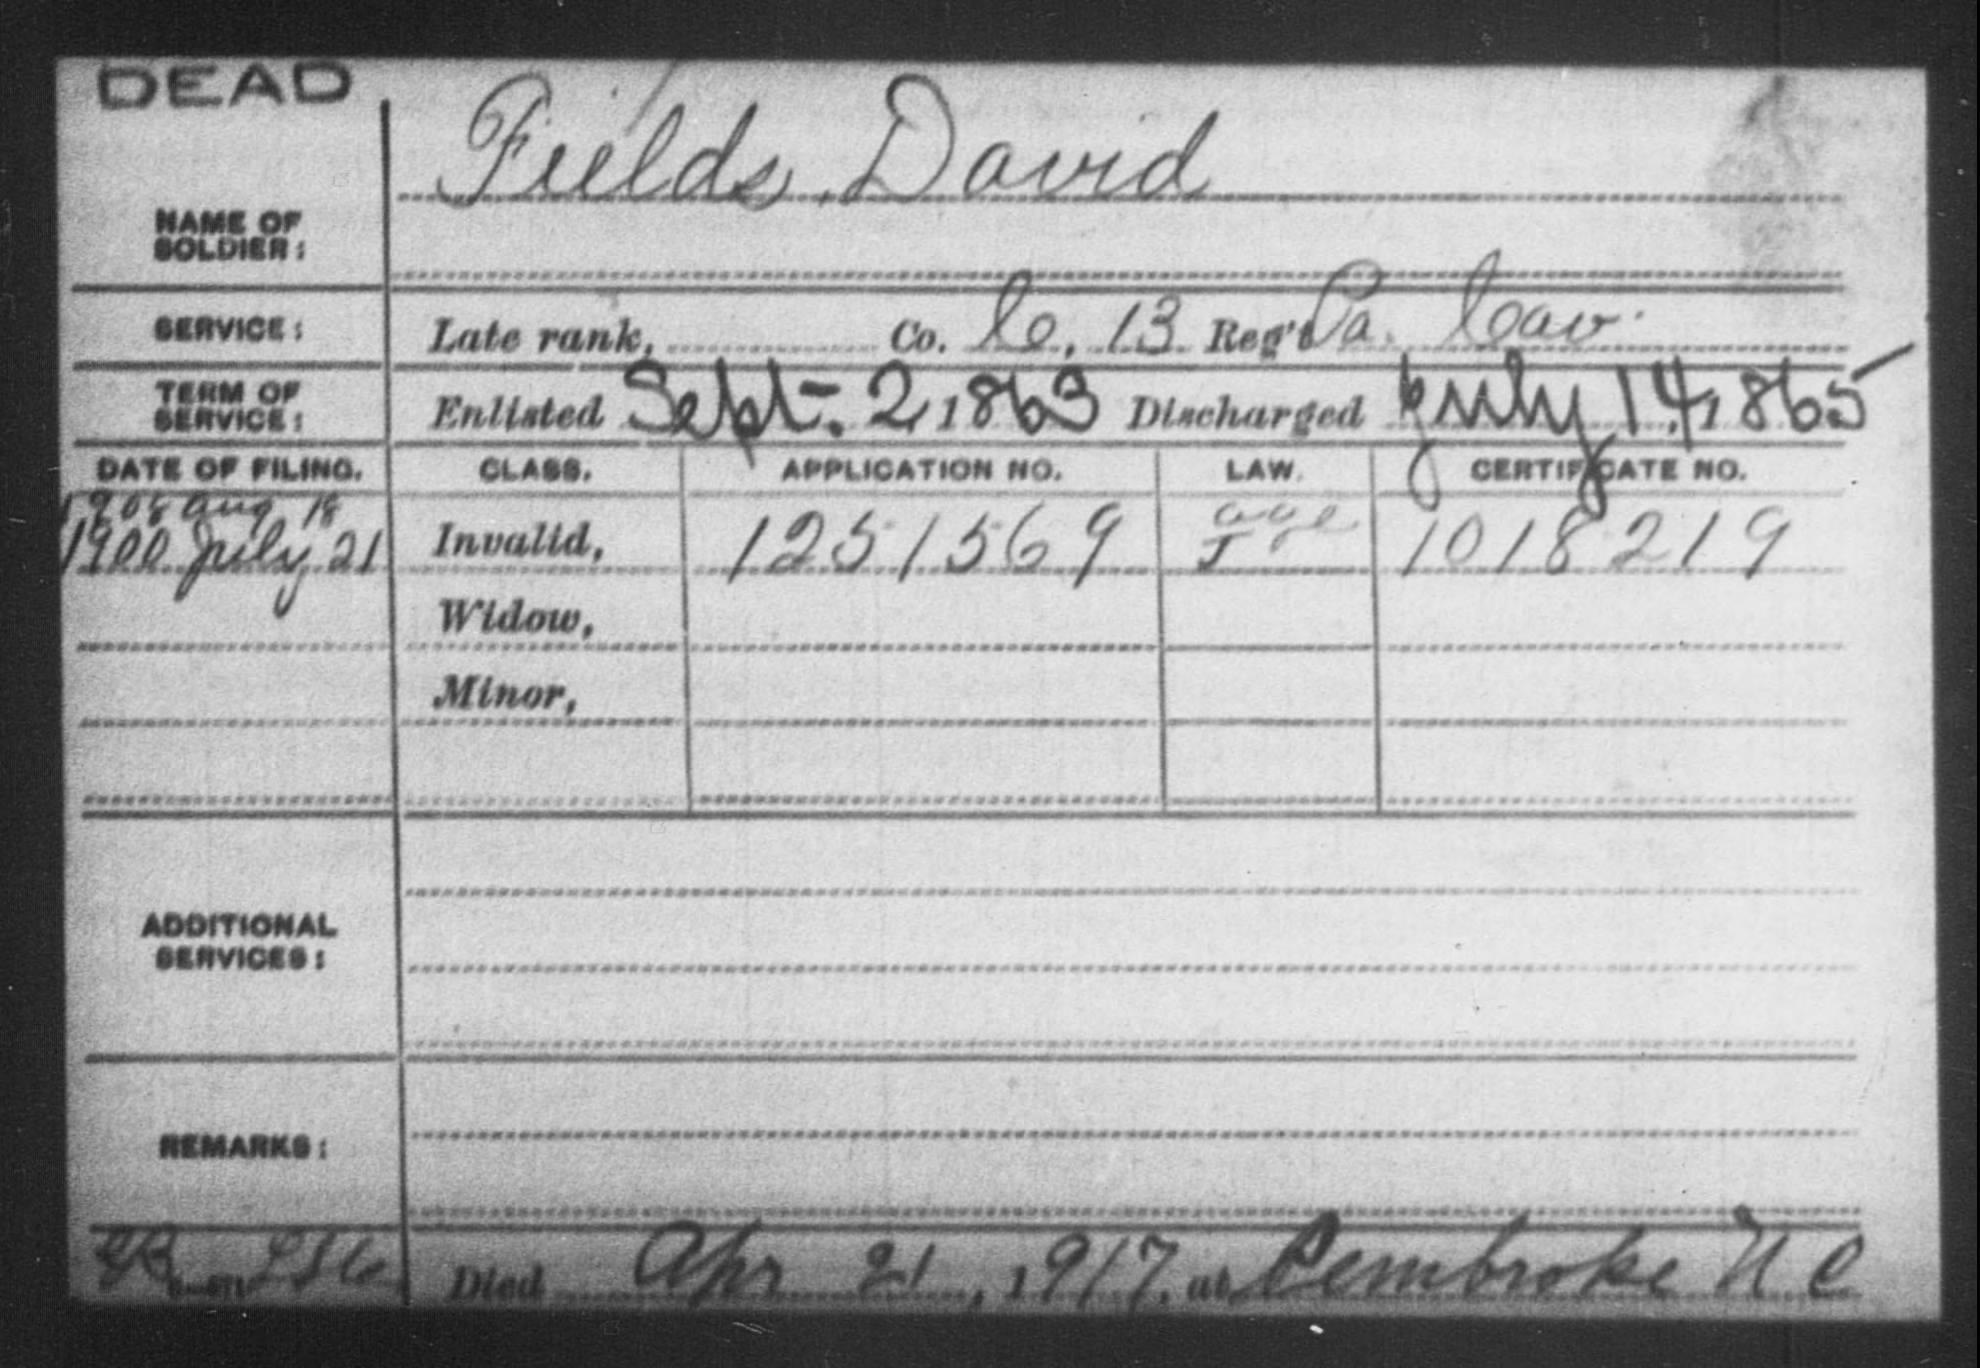 DEAD
Fields, David
NAME OF
SOLDIER:
SERVICE: Late rank, Co. C, 13 Reg't Pa. Cav.
TERM OF
SERVICE: Enlisted Sept. 2, 1863 Discharged July 14, 1865
DATE OF FILING. CLASS. APPLICATION NO. LAW. CERTIFICATE NO.
1908 Aug 18 age
1900 July 21 Invalid, 1251569 J 1018219
Widow,
Minor,
ADDITIONAL
SERVICES:
REMARKS:
Died Apr 21, 1917, at Pembroke N C